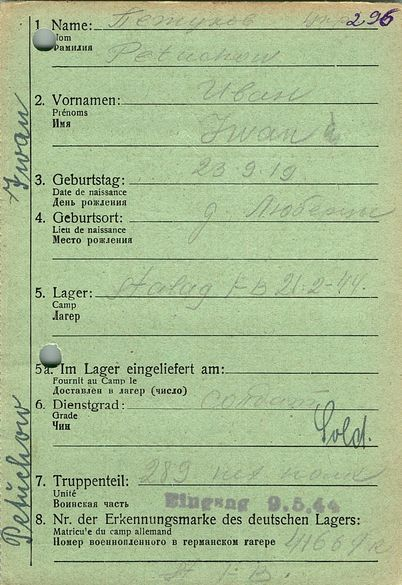 1. Name: Петухов 296
Nom
Фамилия
Petuchow
2. Vornamen: Иван
Prénoms
Имя
Iwan
3. Geburtstag: 23.9.19
Date de naissance
День рождения
4. Geburtsort: д.
Lieu de naissance
Место рождения
5. Lager: Stalag I-B 21-2-44.
Camp
Лагер
5a. Im Lager eingeliefert am:
Fournit au Camp le
Доставлен в лагер (число)
6. Dienstgrad:
Grade
Чин
Sold.
7. Truppenteil: 289
Unité
Воинская часть
Eingang 9.5.44
8. Nr. der Erkennungsmarke des deutschen Lagers:
Matricu'e du camp allemand
Номер военнопленного в германском гагере
I-B.
Petuchow Iwan